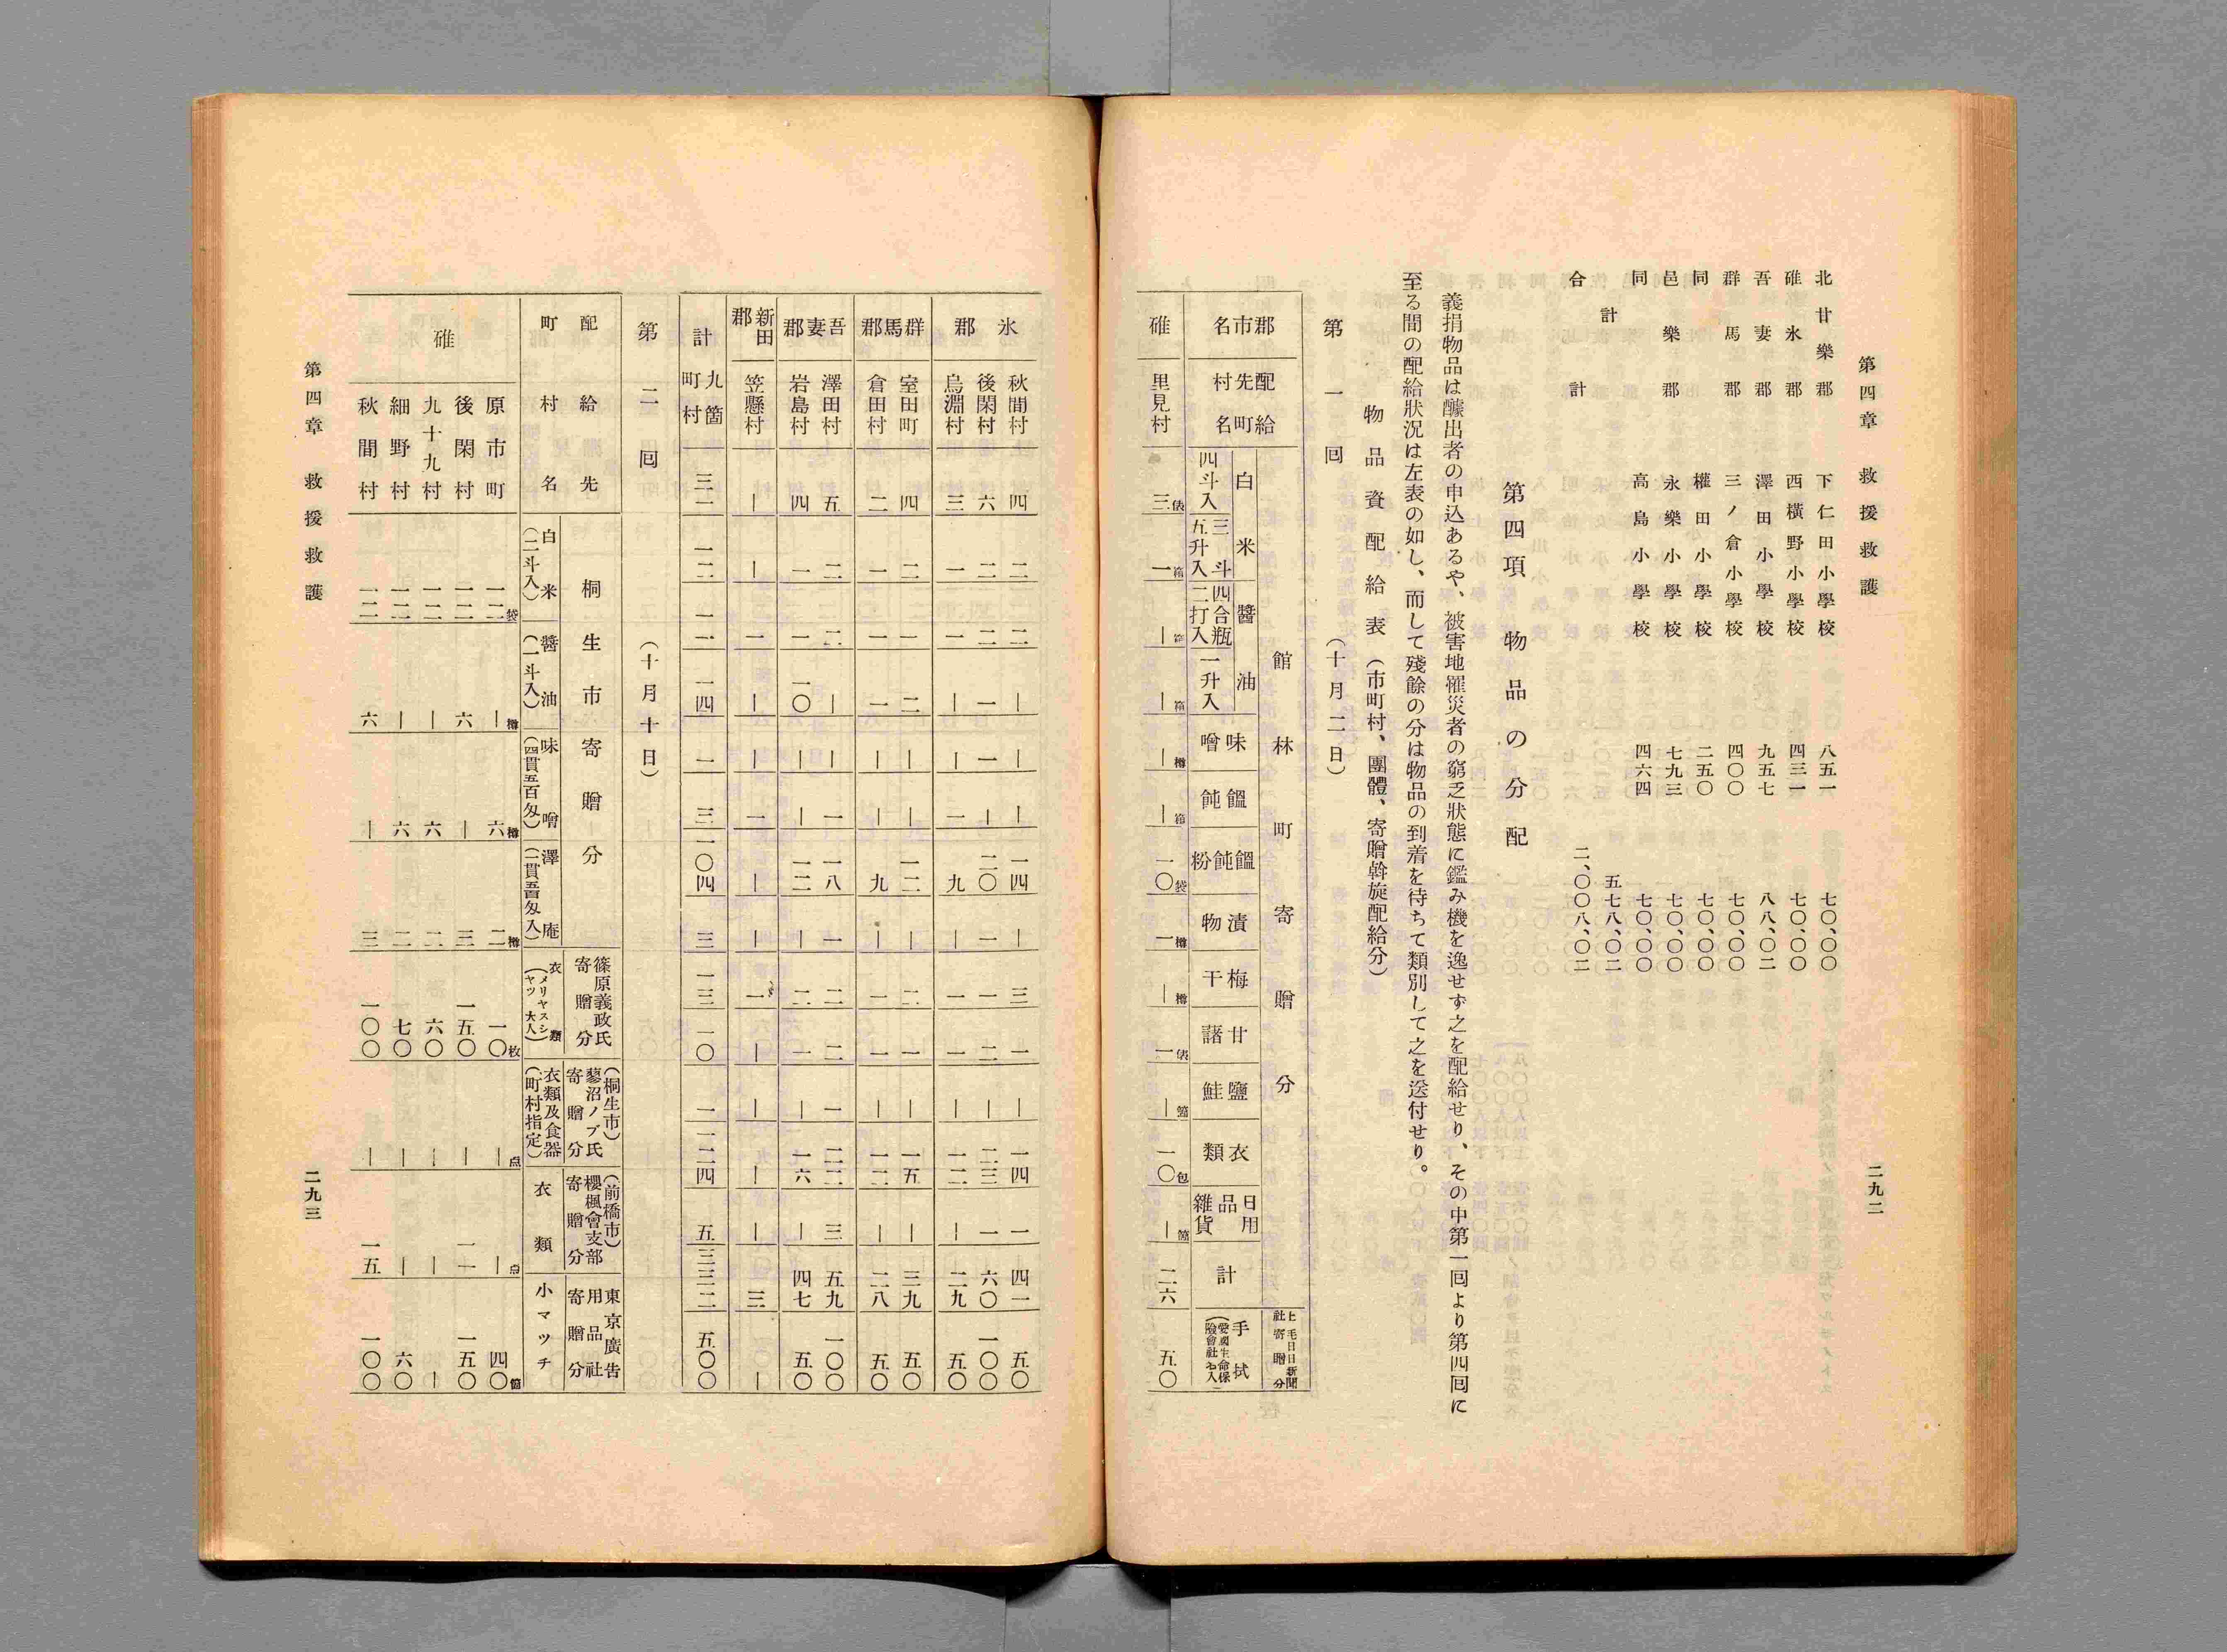 第四章　救援救護
二九二
北甘樂郡　下仁田小學校　八五一　七〇、〇〇
碓氷郡　西橫野小學校　四三一　七〇、〇〇
吾妻郡　澤田小學校　九五七　八八、〇二
群馬郡　三ノ倉小學校　四〇〇　七〇、〇〇
同　權田小學校　二五〇　七〇、〇〇
邑樂郡　永樂小學校　七九三　七〇、〇〇
同　高島小學校　四六四　七〇、〇〇
計　五七八、〇二
合計　二、〇〇八、〇二
第四項　物品の分配
義捐物品は醵出者の申込あるや、被害地罹災者の窮乏狀態に鑑み機を逸せず之を配給せり、その中第一囘より第四囘に
至る間の配給狀況は左表の如し、而して殘餘の分は物品の到着を待ちて類別して之を送付せり。
物品資配給表（市町村、團體、寄贈斡旋配給分）
第一囘　（十月二日）
館林町寄贈分
郡市名　配給先町村名　白米　四斗入　三斗五升入　醬油　四合瓶二打入　一升入　味噌　饂飩　饂飩粉　漬物　梅干　甘藷　鹽鮭　衣類　日用品雜貨　計　上毛日日新聞社寄贈分　手拭
碓　里見村　三俵　一箱　｜箱　｜箱　｜樽　｜箱　一〇袋　一樽　｜樽　一俵　｜　一〇包　｜　二六　五〇
氷郡　秋間村　四　二　二　｜　｜　｜　一四　｜　三　一　｜　一四　一　四一　五〇
後閑村　六　二　二　一　一　｜　二〇　一　一　二　｜　二三　一　六〇　一〇〇
烏淵村　三　一　一　｜　｜　一　九　｜　一　一　｜　一二　｜　二九　五〇
群馬郡　室田町　四　二　一　二　｜　｜　一二　｜　二　一　｜　一五　｜　三九　五〇
倉田村　二　一　一　一　｜　｜　九　｜　一　一　｜　一二　｜　二八　五〇
吾妻郡　澤田村　五　二　二　｜　｜　一　一八　一　二　二　一　二二　三　五九　一〇〇
岩島村　四　一　一　一〇　｜　｜　一二　｜　二　一　｜　一六　｜　四七　五〇
新田郡　笠懸村　｜　｜　一　｜　｜　一　｜　｜　一　｜　｜　｜　｜　三　｜
計　九箇町村　三一　一二　一二　一四　一　三　一〇四　三　一三　一〇　一　一二四　五　三三二　五〇〇
第二囘　（十月十日）
配給先町村名　桐生市寄贈分　白米（二斗入）　醬油（一斗入）　味噌（四貫五百匁）　澤庵　篠原義政氏寄贈分　衣類（メリヤスシヤツ大人）　（桐生市）蓼沼ノブ氏寄贈分　衣類及食器（町村指定）　（前橋市）櫻楓會支部寄贈分　衣類　東京廣告用品社寄贈分　小マツチ
碓　原市町　一二袋　｜樽　六樽　二樽　一〇枚　｜点　｜点　四〇個
後閑村　一二　六　｜　三　一五〇　｜　一一　一五〇
九十九村　一二　｜　六　二　六〇　｜　｜　｜
細野村　一二　｜　六　二　七〇　｜　｜　六〇
秋間村　一二　六　｜　三　一〇〇　｜　一五　一〇〇
第四章　救援救護
二九三